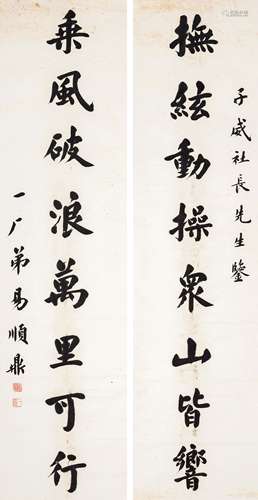 子威社長先生鑒
撫絃動操眾山皆響
乘風破浪萬里可行
一厂弟易順鼎